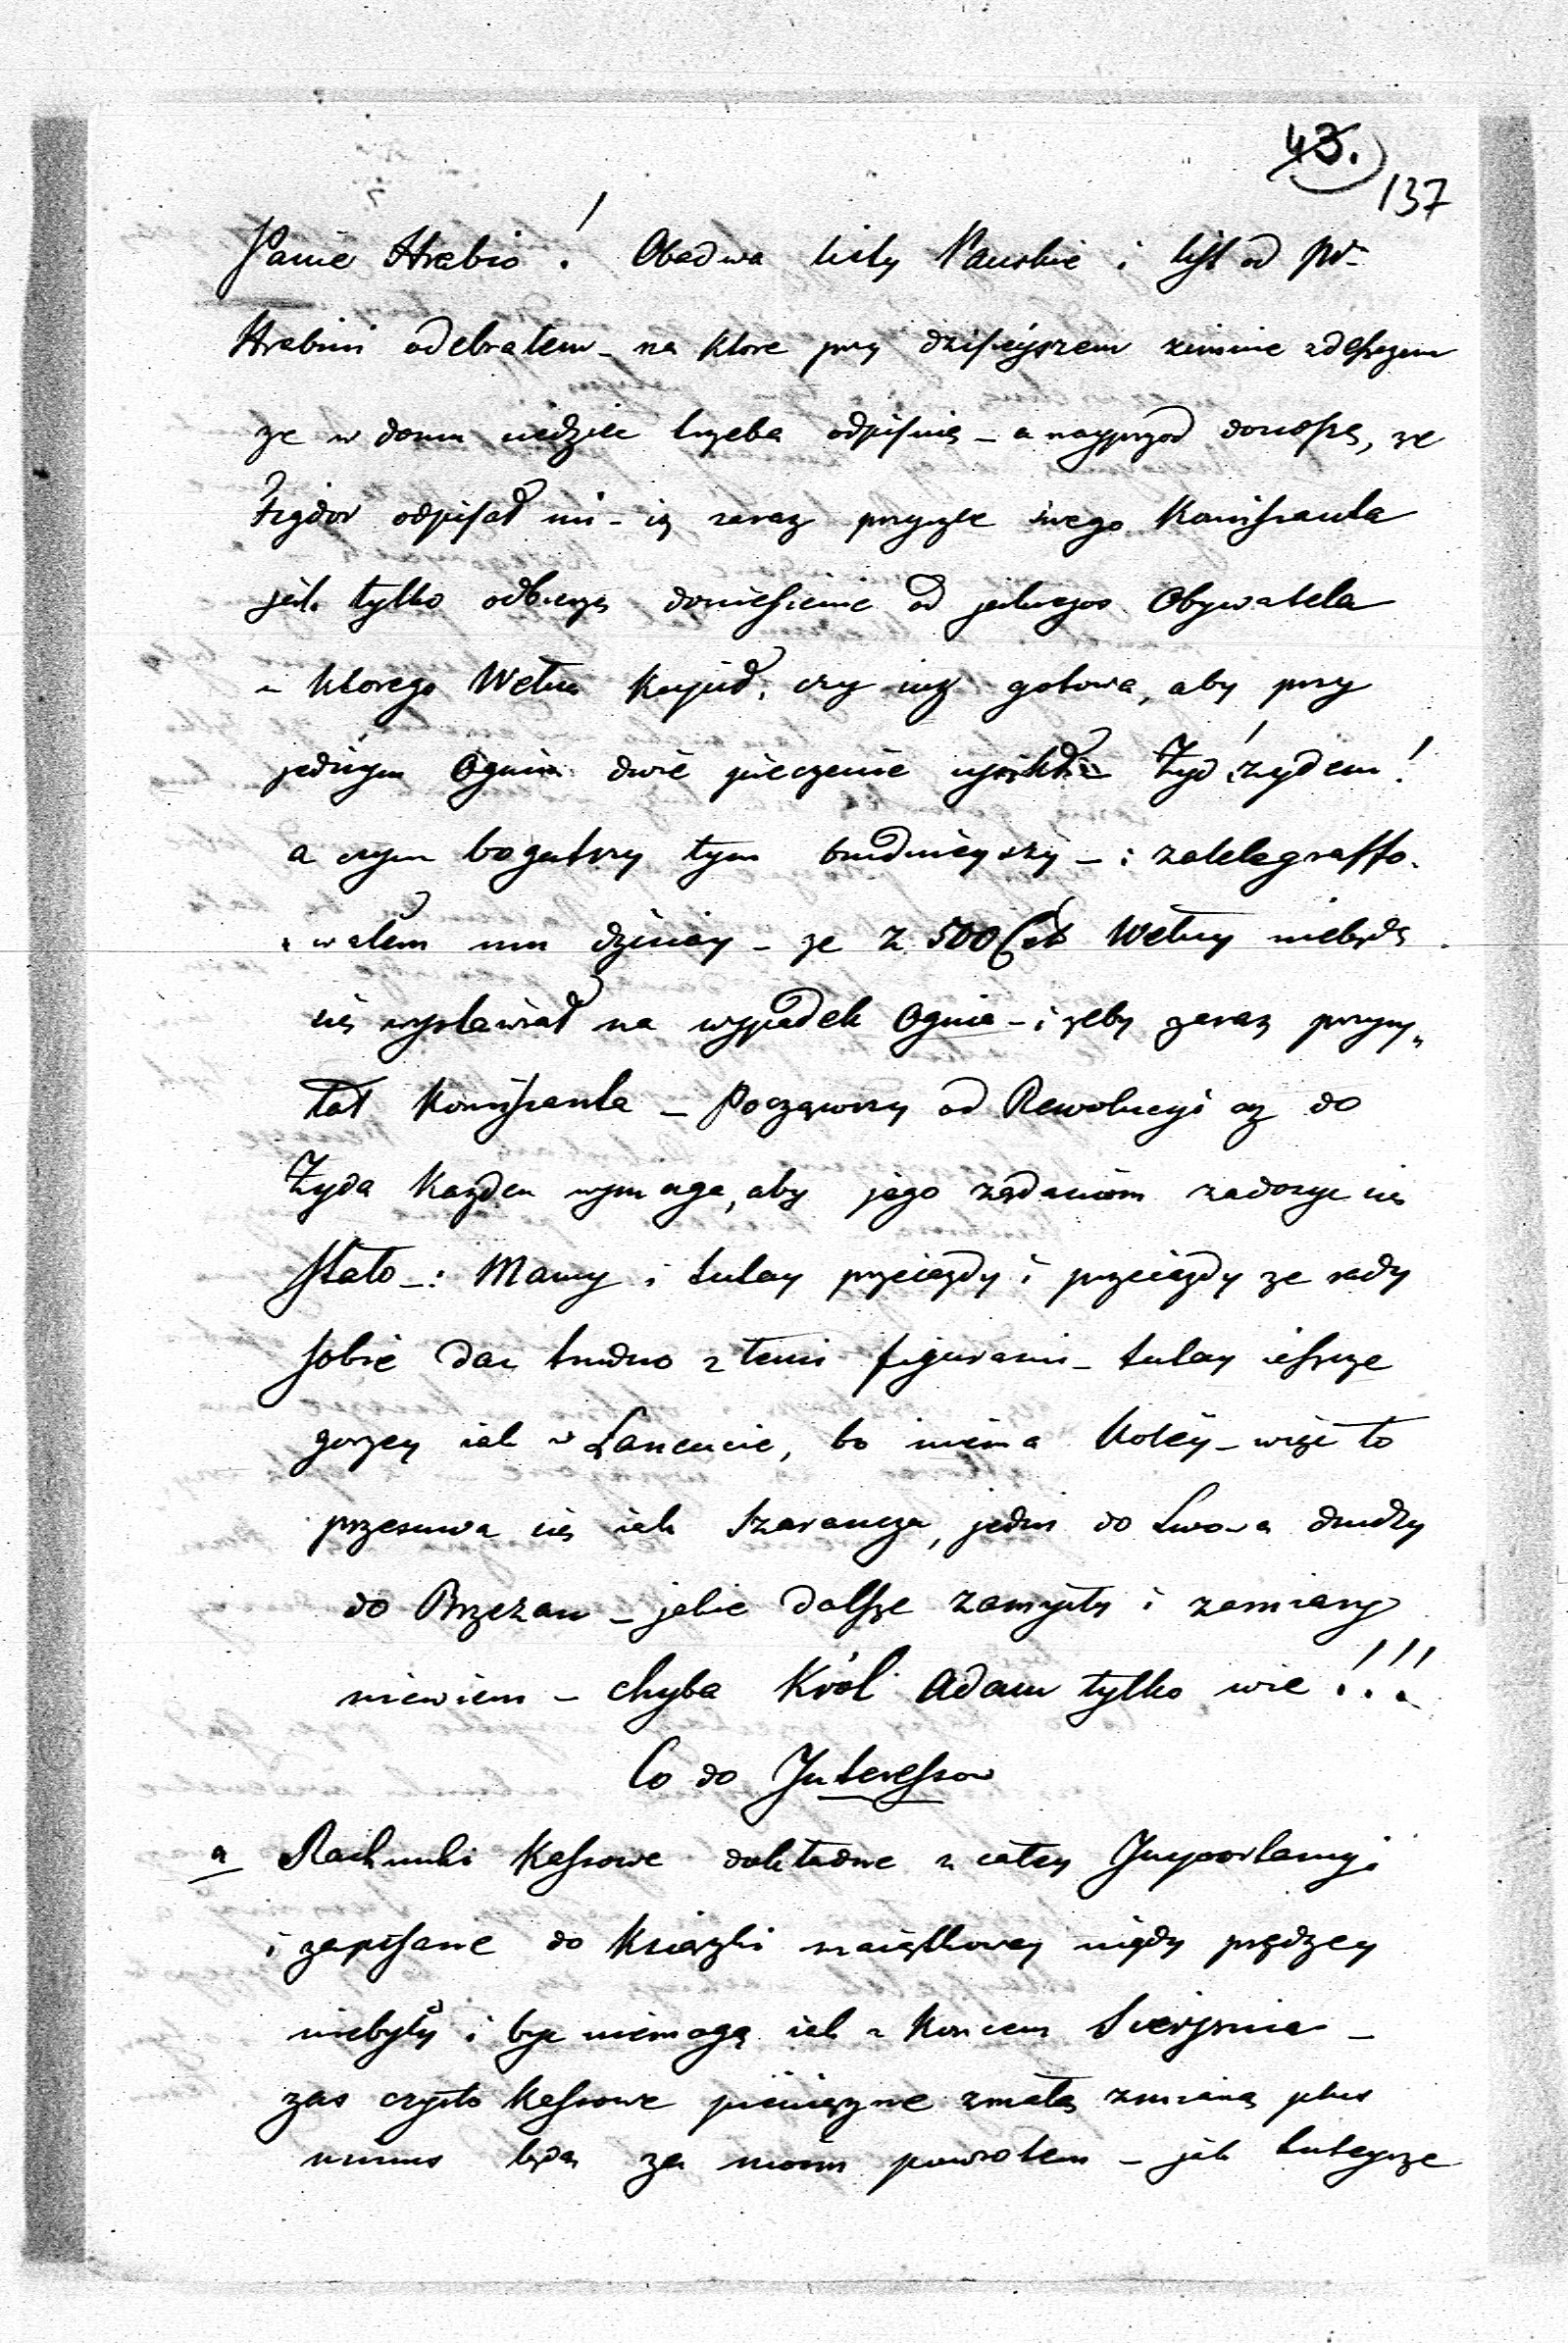 43.
137
Panie Hrabio! Obadwa listy Pańskie i list od
Hrabini odebrałem – na ktore przy dzisieyszem zimnie z deszczem
ze w domu siedziec trzeba odpisuię – a nayprzod donoszę, ze
Fzydor odpisał mi – iz zaraz przyszle swego Komissanta
jak tylko odbierze doniesienie od jednegos Obywatela
u ktorego Wełnę kupił, czy iuz gotowa, aby przy
jednym Ogniu dwie pieczenie Żyd żydem!
a czym bogatszy tym trudnieyszy – i zatelegraffo-
wałem mu dzisiay – ze z 500 Cet Wełny niebędę
się wystawiał na wypadek Ognia – i zeby zaraz przysy„
łał Komissanta – Począwszy od Rewolucyi az do
Żyda kazden wymaga, aby jego ządaniom zadosyc się
stało –: Mamy i tutay przeiazdy i przeiazdy ze rady
sobie dac trudno z temi figurami – tutay ieszcze
gorzey iak w Łancucie, bo niema Koley – więc to
przesuwa się iak Szarancza, jedni do Lwowa drudzy
do Brzezan – jakie dalsze zamysły i zamiary
niewiem – chyba Król Adam tylko wie!!!
Co do Interessow
a Rachunki Kassowe dokładne z całey Importancyi
i zapisane do Książki maiątkowey nigdy prędzey
niebyły i byc niemogą iak z koncem Sierpnia –
zas czysto Kassowe pienięzne zmałą zmianą plus
minus będą za moim powrotem – jak tuteysze